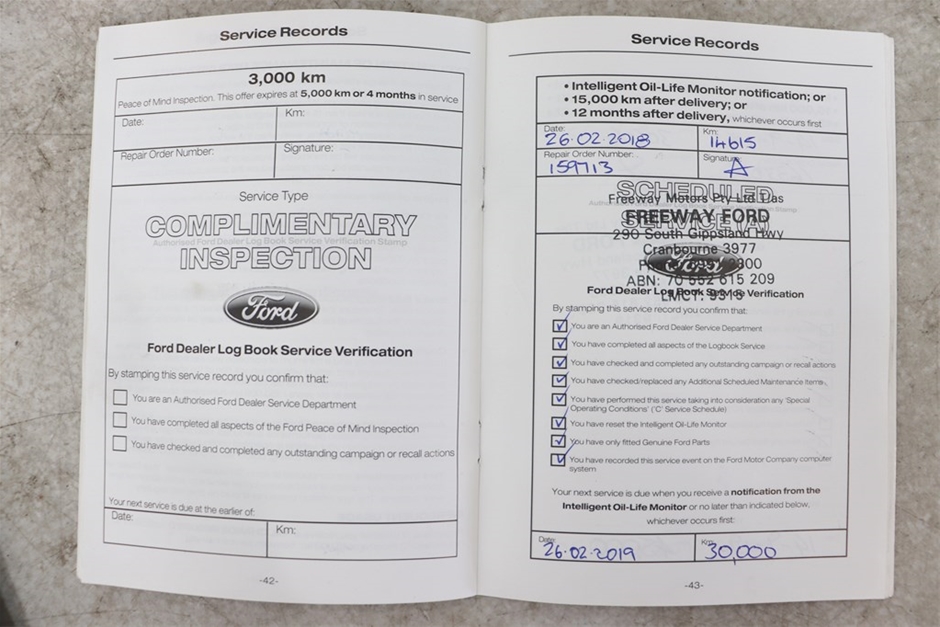 Service Records
3,000 km
Peace of Mind Inspection. This offer expires at 5,000 km or 4 months in service
Date:
Km:
Repair Order Number:
Signature:
Service Type
COMPLIMENTARY
Authorised Ford Dealer Log Book Service Verification Stamp
INSPECTION
Ford
Ford Dealer Log Book Service Verification
By stamping this service record you confirm that:
You are an Authorised Ford Dealer Service Department
You have completed all aspects of the Ford Peace of Mind Inspection
You have checked and completed any outstanding campaign or recall actions
Your next service is due at the earlier of:
Date:
Km:
-42-
Service Records
• Intelligent Oil-Life Monitor notification; or
• 15,000 km after delivery; or
• 12 months after delivery, whichever occurs first
Date:
26.02.2018
Km:
14615
Repair Order Number:
159713
Signature:
A
SCHEDULED
Freeway Motors Pty Ltd. Das
FREEWAY FORD
SERVICE (A)
290 South Gippsland Hwy
Cranbourne 3977
Ford
ABN: 70 552 615 209
Ford Dealer Log Book Service Verification
LMCT: 9316
By stamping this service record you confirm that:
You are an Authorised Ford Dealer Service Department
You have completed all aspects of the Logbook Service
You have checked and completed any outstanding campaign or recall actions
You have checked/replaced any Additional Scheduled Maintenance Items
You have performed this service taking into consideration any 'Special
Operating Conditions' ('C' Service Schedule)
You have reset the Intelligent Oil-Life Monitor
You have only fitted Genuine Ford Parts
You have recorded this service event on the Ford Motor Company computer
system
Your next service is due when you receive a notification from the
Intelligent Oil-Life Monitor or no later than indicated below,
whichever occurs first:
Date:
26.02.2019
Km:
30,000
-43-